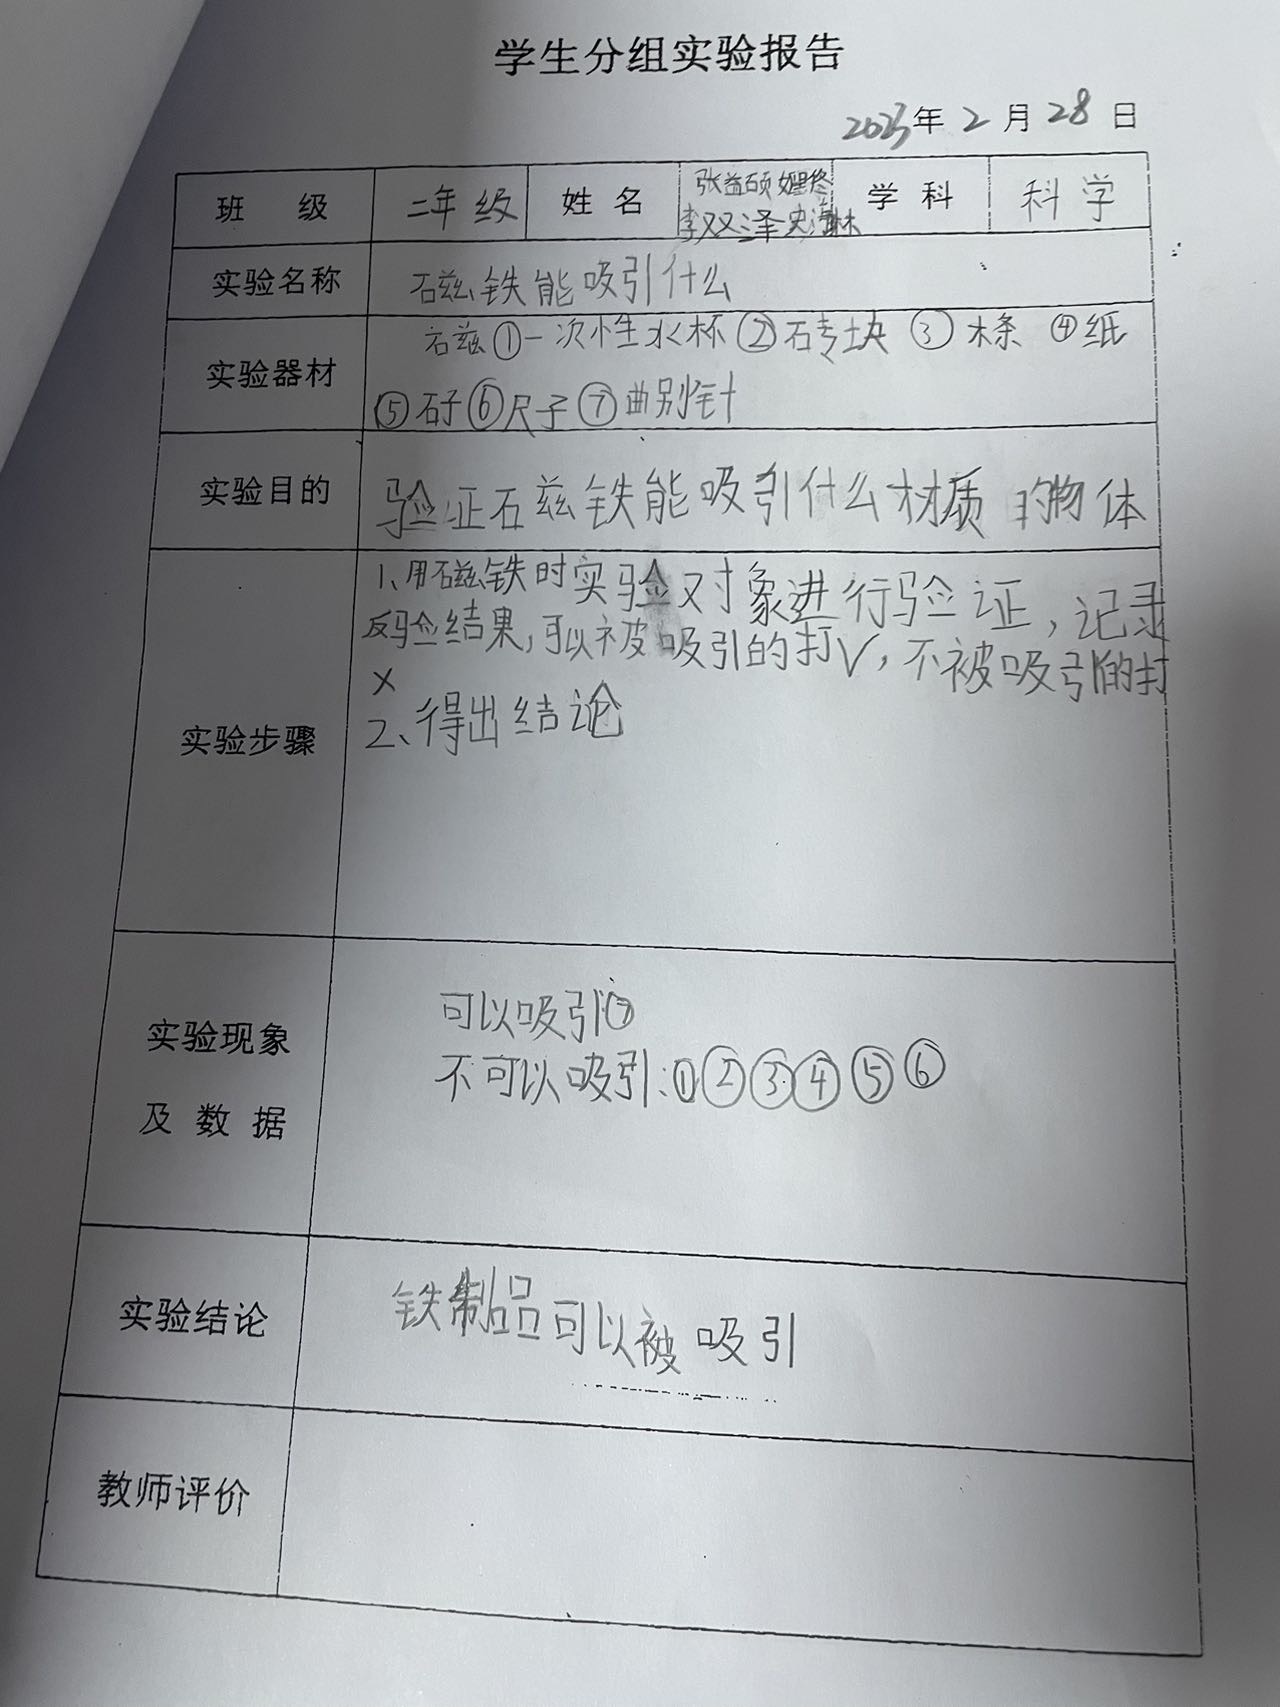 学生分组实验报告
2023年2月28日
班 级 二年级 姓 名 张益硕 李双泽史海林 学 科 科学
实验名称 磁铁能吸引什么
实验器材 磁①一次性水杯②砖块③木条④纸
⑤石子⑥尺子⑦曲别针
实验目的 验证磁铁能吸引什么材质的物体
实验步骤
1、用磁铁时实验对象进行验证,记录
反验结果,可以被吸引的打√,不被吸引的打
×
2、得出结论
实验现象
及 数 据
可以吸引⑦
不可以吸引:①②③④⑤⑥
实验结论 铁制品可以被吸引
教师评价